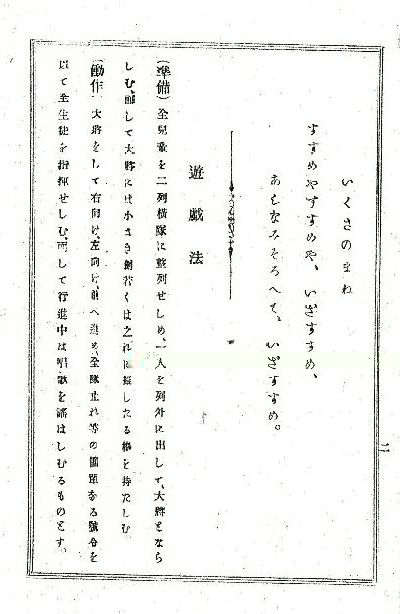 いくさのまね
すすめやすすめや、いざすすめ、
あしなみそろへて、いざすすめ。
遊戯法
(準備)全兒童を二列横隊に整列せしめ、一人を列外に出して、大將となら
しむ、而して大將には小さき劒若くは之れに擬したる棒を持たしむ
(働作)大將をして右向け、左向け、前へ進め、全隊止れ等の簡單なる號令を
以て全生徒を指揮せしむ、而して行進中は唱歌を謠はしむるものとす。